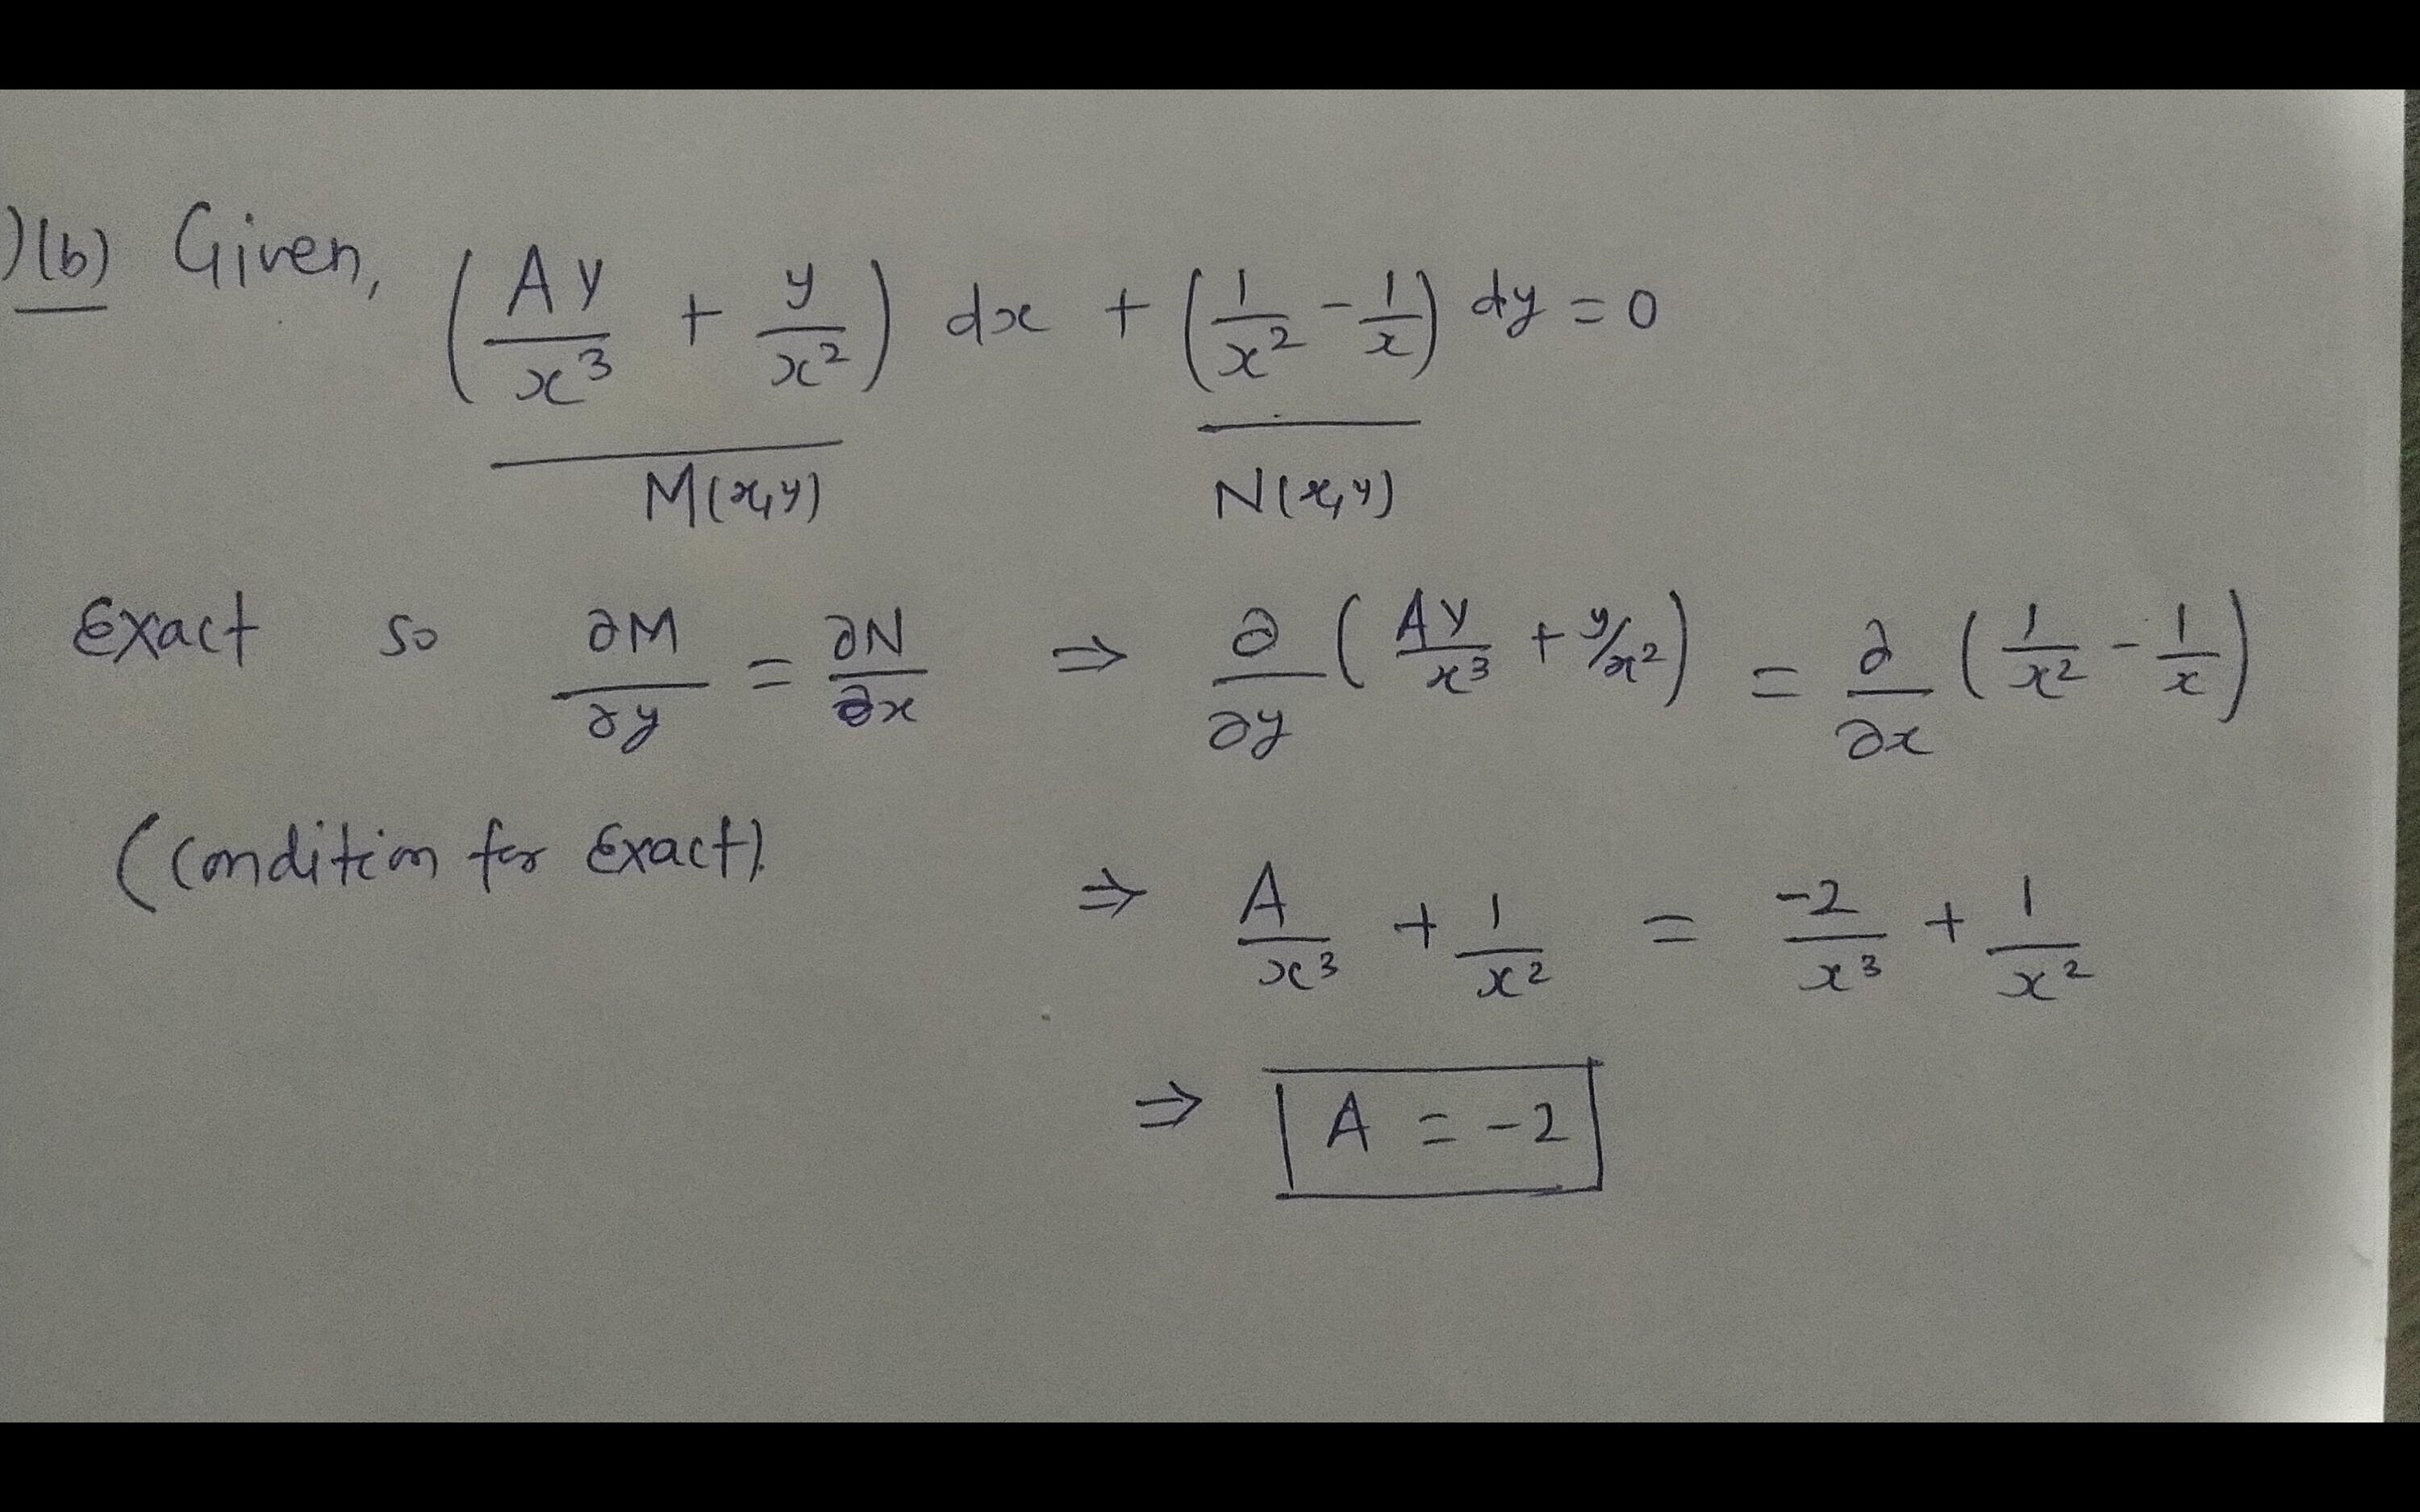 )(b) Given, (Ay/x³ + y/x²) dx + (1/x² - 1/x) dy = 0
M(x,y) N(x,y)
Exact so ∂M/∂y = ∂N/∂x ⇒ ∂/∂y (Ay/x³ + y/x²) = ∂/∂x (1/x² - 1/x)
(Condition for Exact).
⇒ A/x³ + 1/x² = -2/x³ + 1/x²
⇒ A = -2